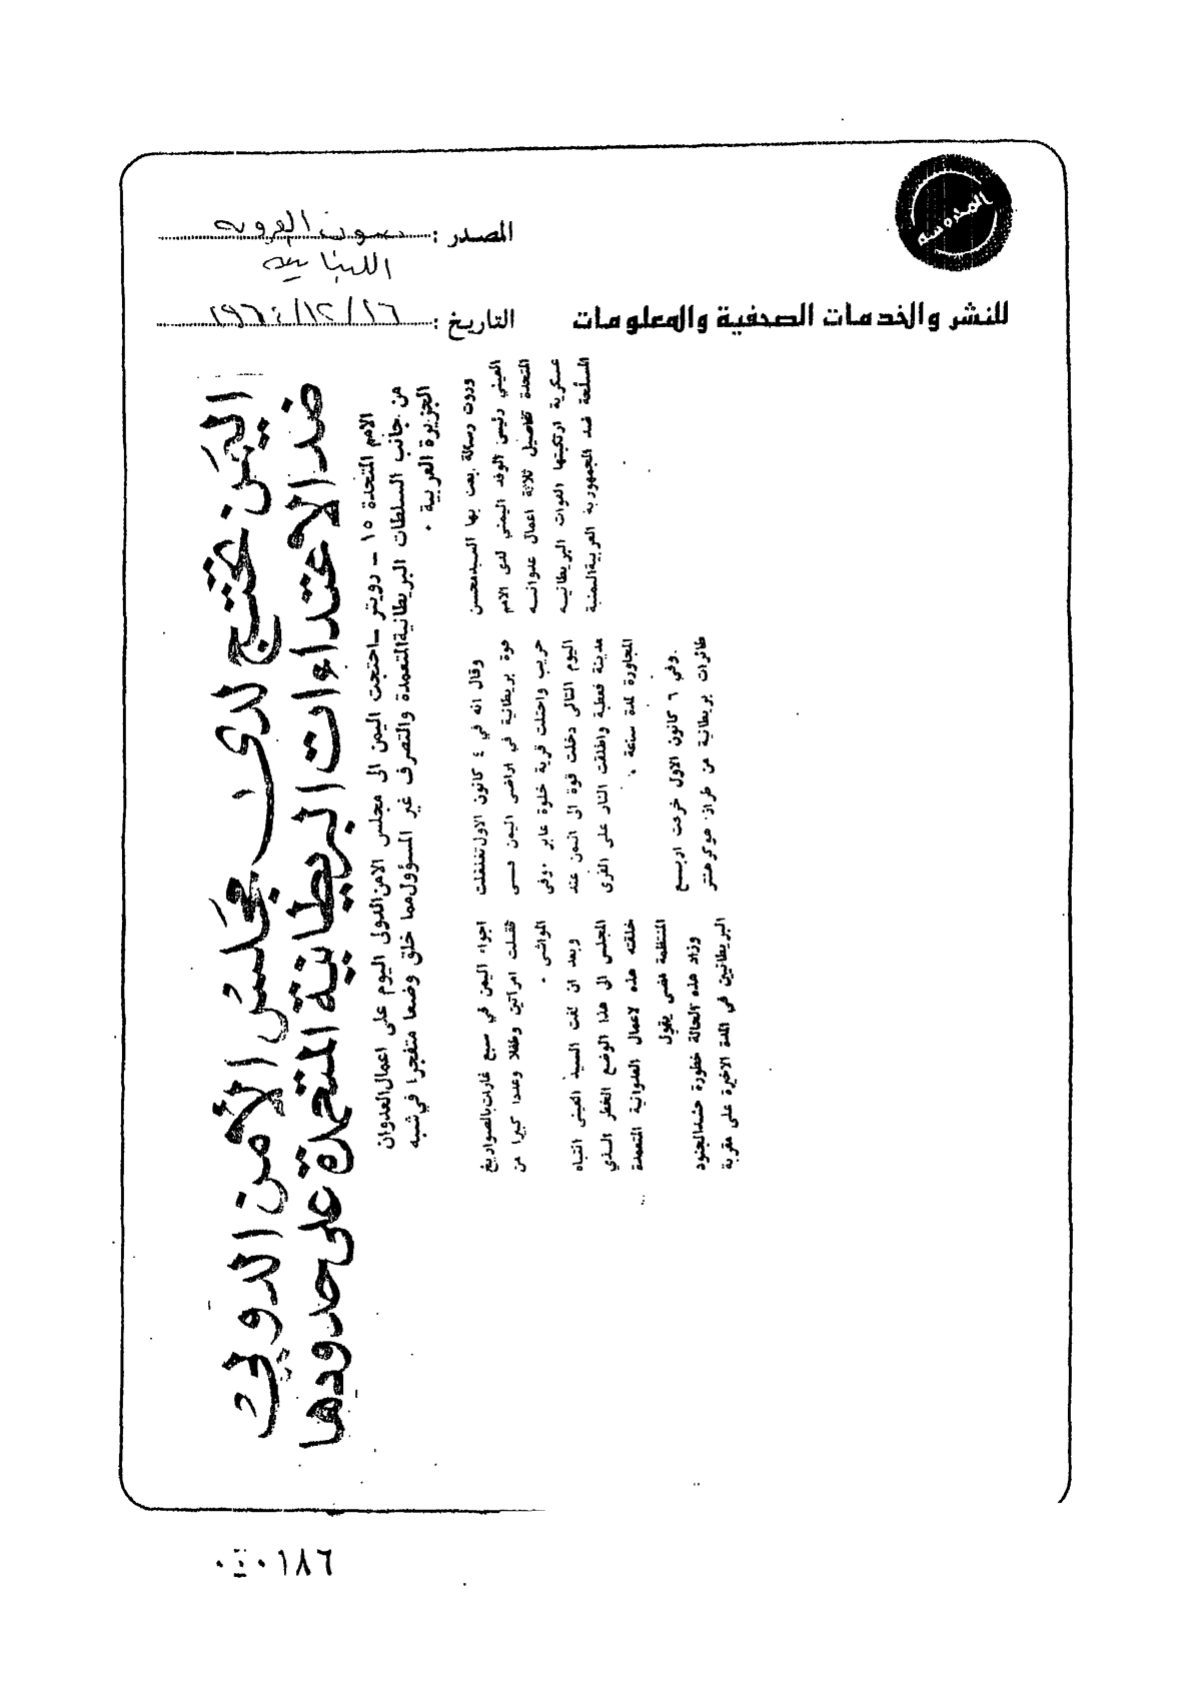 المصدر : صوت العروبة
اللبنانية
للنشر والخدمات الصحفية والمعلومات
التاريخ : ١٩٦٤/١٢/١٦
اليمن تحتج لدى مجلس الأمن الدولي
ضد الاعتداءات البريطانية المتكررة على حدودها
الامم المتحدة ١٥ - رويتر - احتجت اليمن الى مجلس الامن الدولى اليوم على اعمال العدوان
من جانب السلطات البريطانية المتعمدة والتصرف غير المسؤول مما خلق وضعا متفجرا في شبه
الجزيرة العربية .
ووردت رسالة بعث بها السيد محسن
العيني رئيس الوفد اليمني لدى الامم
المتحدة تفاصيل ثلاثة اعمال عدوانيه
عسكرية ارتكبتها القوات البريطانيه
المسلحة ضد الجمهورية العربية اليمنية
وقال انه في ٤ كانون الاول تغلغلت
قوة بريطانية في اراضى اليمن فى
حريب واحتلت قرية خلوة عابر . وفى
اليوم التالى دخلت قوة الى اليمن عند
مدينة قعطبة واطلقت النار على القرى
المجاورة لمدة ساعة .
وفي ٦ كانون الاول خرقت اربع
طائرات بريطانية من طراز هوكر هنتر
اجواء اليمن في سبع غارات بالصواريخ
فقتلت امراتين وطفلا وعددا كبيرا من
المواشى .
وبعد ان لفت السيد العينى انتباه
المجلس الى هذا الوضع الخطر الذي
خلقته هذه لاعمال العدوانية المتعمدة
المنتظمة مضى يقول
وزاد هذه الحالة خطورة حشد الجنود
البريطانيين في المدة الاخيرة على مقربة
٠٠٠١٨٦